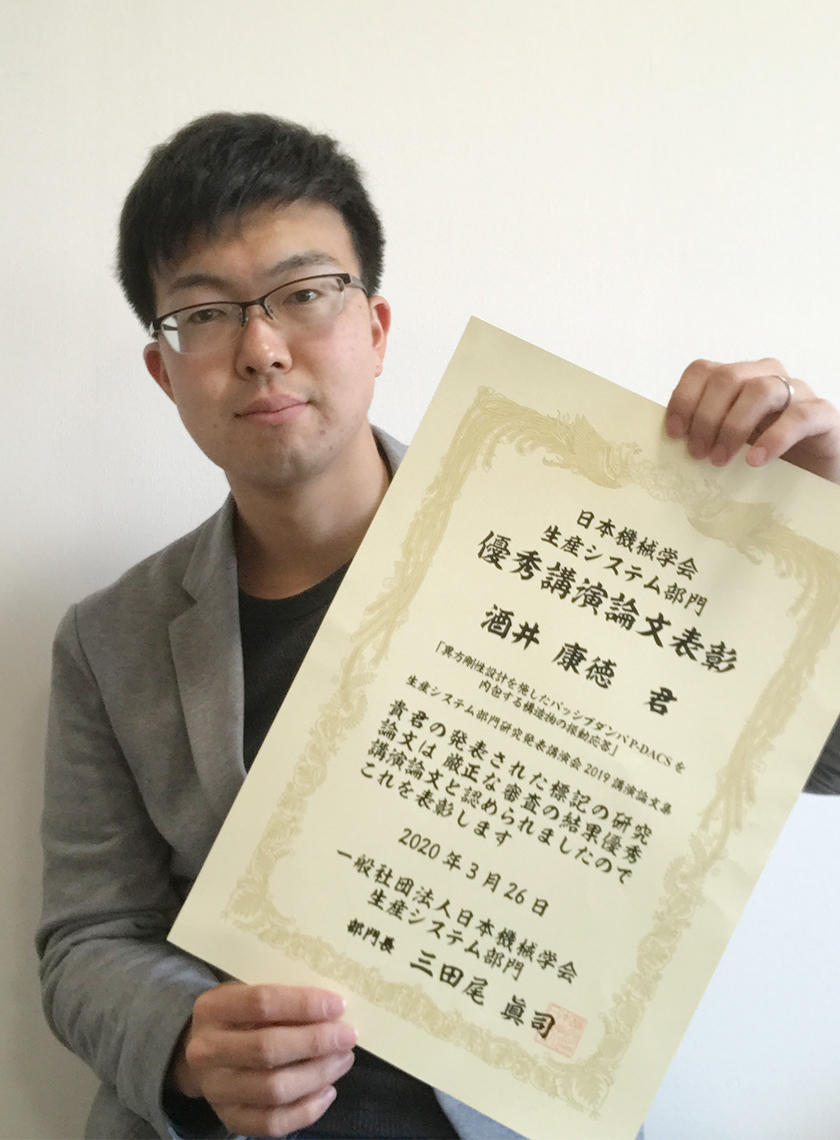 日本機械学会
生産システム部門
優秀講演論文表彰
酒井 康徳 君
「異方剛性設計を施したパッシブダンパP-DACSを
内包する構造物の振動応答」
生産システム部門研究発表講演会2019講演論文集
貴君の発表された標記の研究
論文は厳正な審査の結果優秀
講演論文と認められましたので
これを表彰します
2020年3月26日
一般社団法人日本機械学会
生産システム部門
部門長 三田尾 眞司